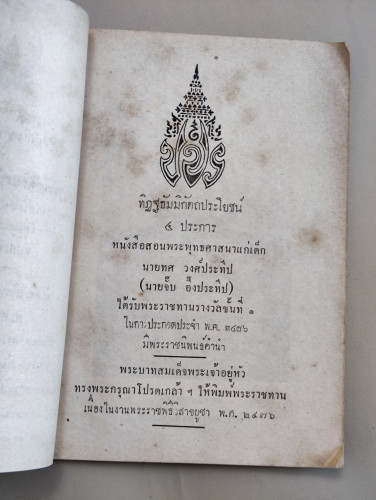 ทิฏฐธัมมิกัตถประโยชน์
๔ ประการ
หนังสือสอนพระพุทธศาสนาแก่เด็ก
นายทศ วงศ์ประทีป
(นายจีบ อึ้งประทีป)
ได้รับพระราชทานรางวัลชั้นที่ ๑
ในการประกวดประจำ พ.ศ. ๒๔๗๖
มีพระราชนิพนธ์คำนำ
พระบาทสมเด็จพระเจ้าอยู่หัว
ทรงพระกรุณาโปรดเกล้า ฯ ให้พิมพ์พระราชทาน
เนื่องในงานพระราชพิธีวิสาขบูชา พ.ศ. ๒๔๗๖